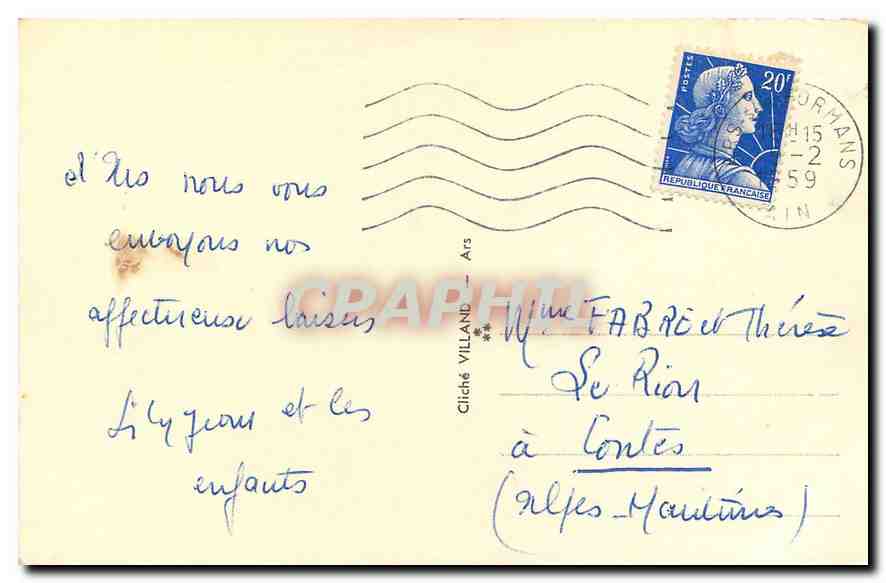 d'Ars nous vous
envoyons nos
affectueux baisers
Lily Jean et les
enfants
Cliché VILLAND — Ars
CPAPHIL
POSTES
20F
REPUBLIQUE FRANÇAISE
ARS FORMANS
H 15
-2
59
AIN
Mme FABRE et Thérèse
Le Riou
à Contes
(Alpes-Maritimes)